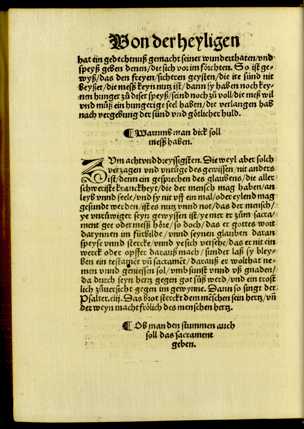 Von der heyligen
hat ein gedechtnuß gemacht seiner wunderthaten/vnd
speyß geben denen/die sich vor im förchten. So ist ge-
wyß/das den freyen/sichern geysten/die ire sünd nit
beyßet/die meß keyn nuz ist/dann sy haben noch key-
nen hunger zů diser speyß/seind noch zů voll der můß wil
vnd můß ein hungerige seel haben/die verlangen hab
nach vergebung der sünd vnd götlicher huld.
¶ Warumb man dick soll
meß haben.
Zum achtvnddreyssigsten. Die weyl aber solch
verzagen vnd vnrůge des gewissen/nit anders
ist/denn ein gesprechen des glaubens/die aller
schweriste kranckheyt/die der mensch mag haben/an
leyb vnnd seele/vnd sy nit vff ein mal/oder eylend mag
gesundt werden/ist es nutz vnnd not/das der mensch/
ye vnrüwiger seyn gewyssen ist/ye mer er zům sacra-
ment gee oder meß höre/so doch/das er gottes wort
darynnen im fürbilde/vnnd seynen glauben daran
speyse vnnd stercke/vnnd ye sich versehe/das er nit ein
werck oder opffer darauß mach/sunder laß sy bley-
ben ein testament vñ sacramēt/darauß er wolthat ne-
men vnd geniessen sol/vmb sunst vnnd vß gnaden/
da durch seyn hertz gegen got süß werd/vnd ein trost
lich zůuersicht gegen im gewynne. Dann so singt der
Psalter.ciij. Das brot sterckt dem mēschen sein hertz/vñ
der weyn macht frölich des menschen hertz.
¶ Ob man den stummen auch
soll das sacrament
geben.